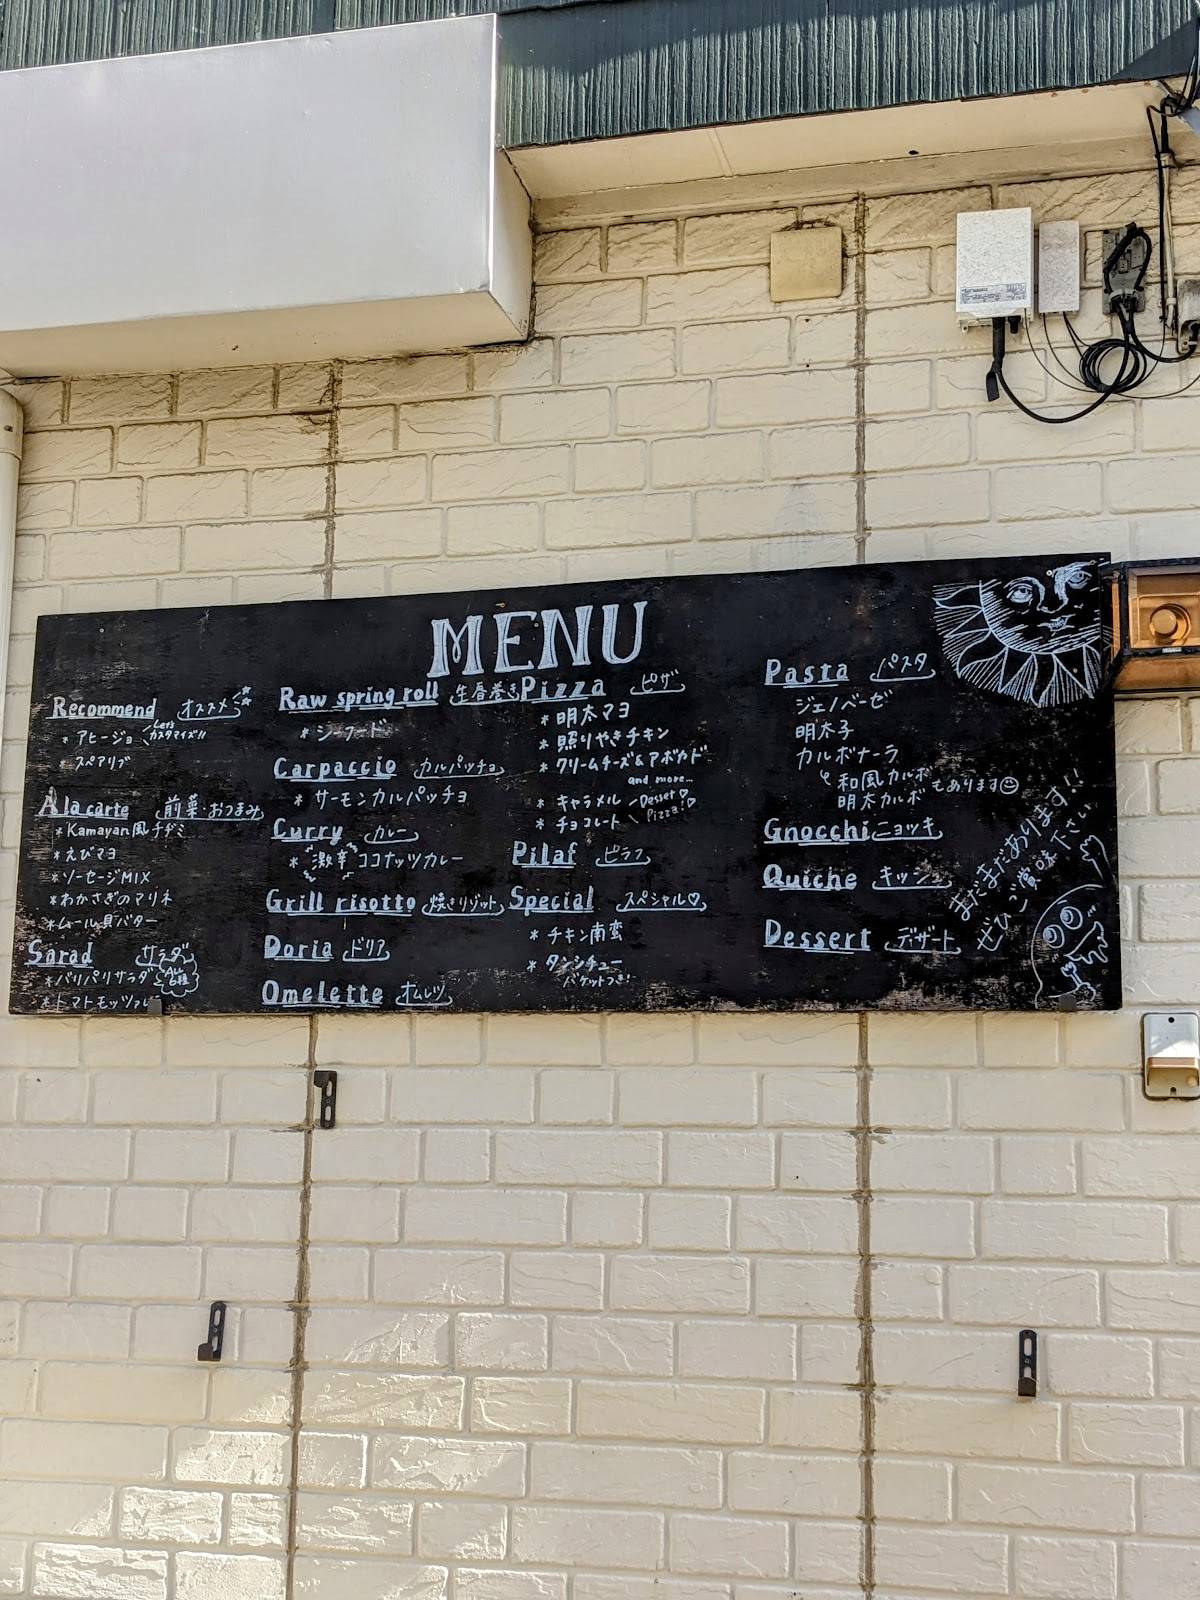 MENU
Recommend オススメ
* アヒージョ Let's カスタマイズ!!
* スペアリブ
A la carte 前菜・おつまみ
* Kamayan風チヂミ
* えびマヨ
* ソーセージMIX
* わかさぎのマリネ
* ムール貝バター
Sarad サラダ
* パリパリサラダ
* トマトモッツァレ
Raw spring roll 生春巻き
* シーフード
Carpaccio カルパッチョ
* サーモンカルパッチョ
Curry カレー
* 激辛 ココナッツカレー
Grill risotto 焼きリゾット
Doria ドリア
Omelette オムレツ
Pizza ピザ
* 明太マヨ
* 照りやきチキン
* クリームチーズ&アボカド
and more...
* キャラメル Desset♡
* チョコレート Pizza!
Pilaf ピラフ
Special スペシャル♡
* チキン南蛮
* タンシチュー
バケットつき
Pasta パスタ
ジェノベーゼ
明太子
カルボナーラ
和風カルボ
明太カルボ もあります☺
Gnocchi ニョッキ
Quiche キッシュ
Dessert デザート
まだまだあります!!
ぜひご賞味下さい